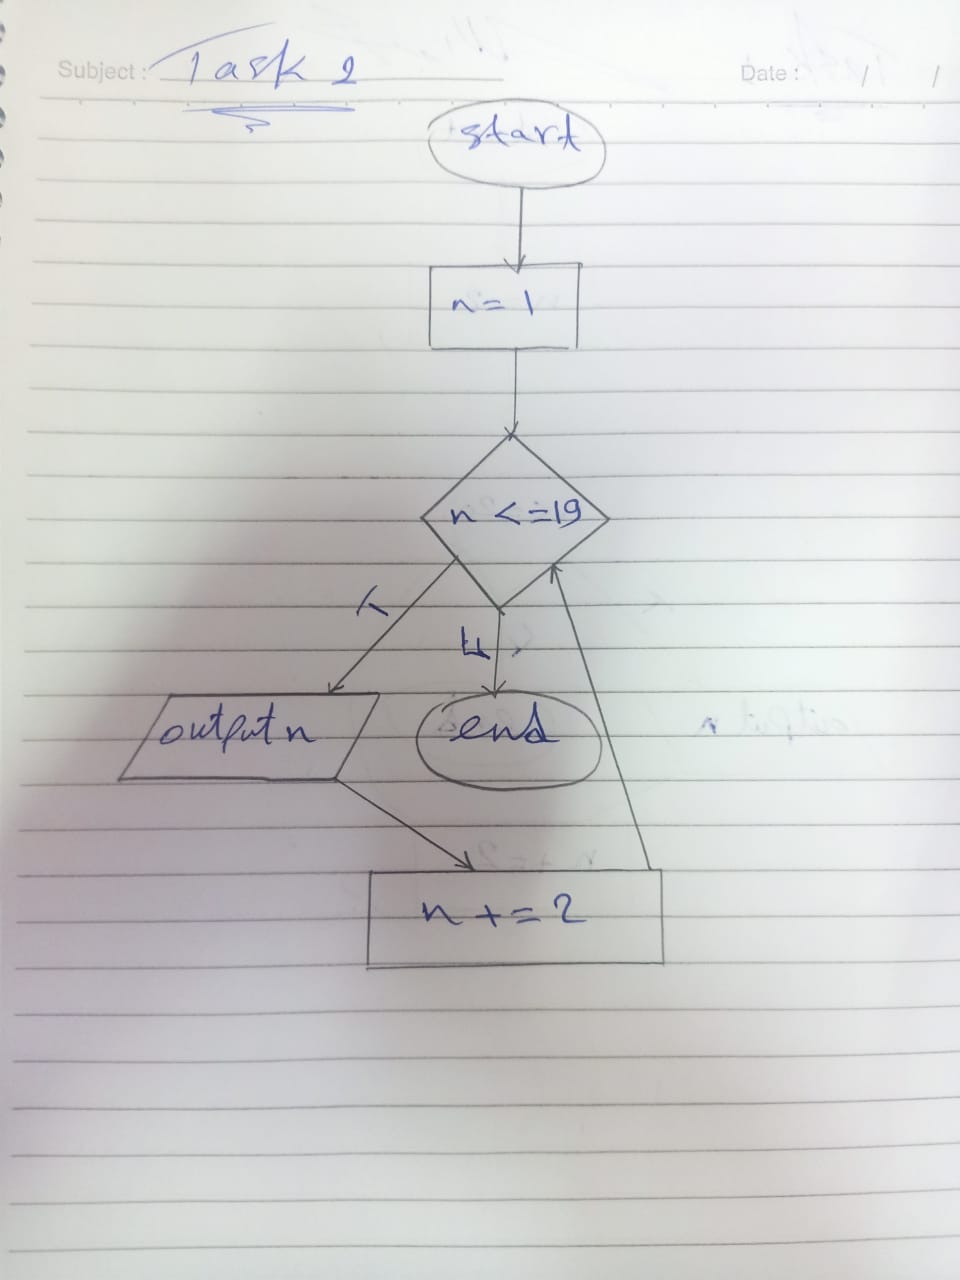 Subject: Task 2
Date: / /
start
n = 1
n <=19
T
F
output n
end
n += 2